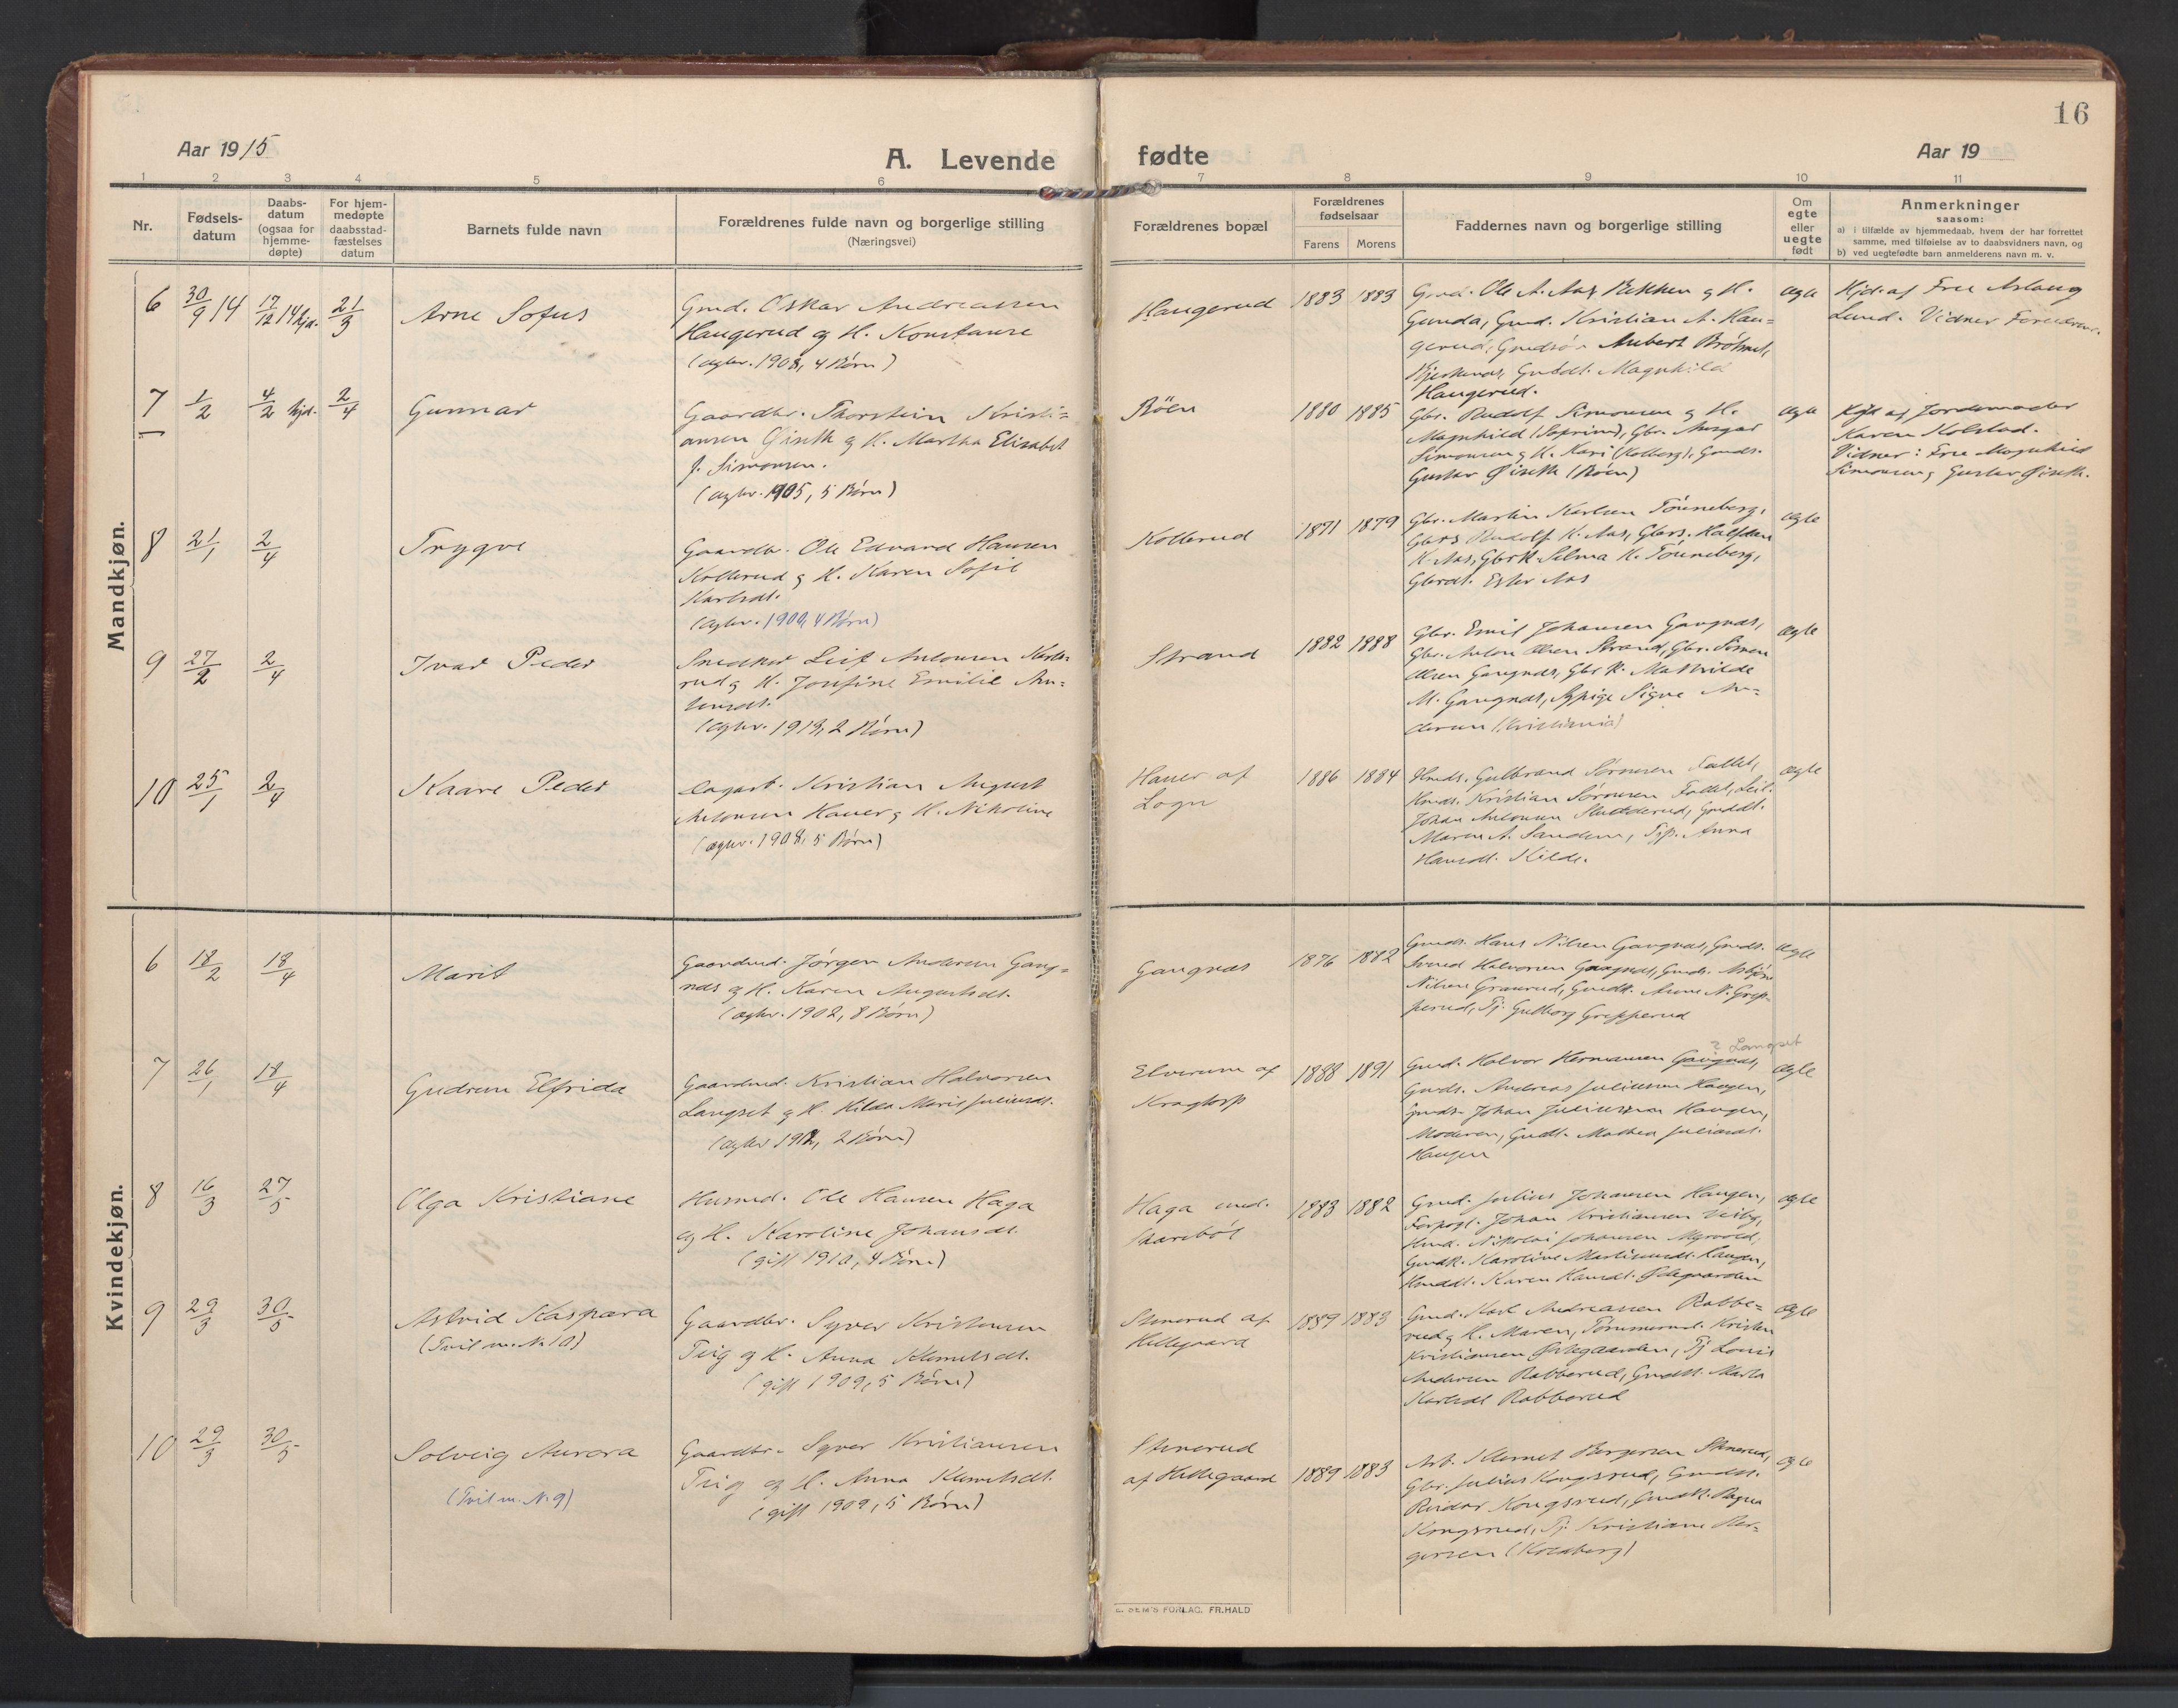 16
Aar 1915
A. Levende fødte
Aar 19
1 2 3 4 5 6 7 8 9 10 11
Nr.
Fødsels-
datum
Daabs-
datum
(ogsaa for
hjemme-
døpte)
For hjem-
medøpte
daabsstad-
fæstelses
datum
Barnets fulde navn
Forældrenes fulde navn og borgerlige stilling
(Næringsvei)
Forældrenes bopæl
Forældrenes
fødselsaar
Farens Morens
Faddernes navn og borgerlige stilling
Om
egte
eller
uegte
født
Anmerkninger
saasom:
a) i tilfælde av hjemmedaab, hvem der har forrettet
samme, med tilføielse av to daabsvidners navn, og
b) ved uegtefødte barn anmelderens navn m. v.
Mandkjøn.
6 30/9 14 17/12 14 hjd. 21/3
Arne Sofus
Gmd. Oskar Andreassen
Haugerud og H. Konstanse
(ægtev. 1908, 4 Børn)
Haugerud
1883 1883
Gmd. Ole A. Aas, Bakken og H.
Gunda, Gmd. Kristian A. Hau=
gerud,
Haugerud.
ægte
Hjd. af Frue Aslaug
Lund. Vidner Forældrene.
7 1/2 4/2 hjd. 2/4
Gunnar
Gaardbr. Thorstein Kristi=
ansen Giseth og H. Martha Elisabet
J. Simonsen.
(ægtev. 1905, 5 Børn)
Böen
1880 1885
Gbr. Rudolf Simonsen og H.
Magnhild (Soprim), Gbr. Ansgar
Simonsen og H. Kari (Kolberg), Gmds.
Gustav Giseth (Böen)
ægte
Hjd af Jordemoder
Karen Kolstad.
Vidner: Frue Magnhild
Simonsen, Gustav Giseth.
8 21/1 2/4
Trygve
Gaardbr. Ole Edvard Hansen
Kollerud og H. Karen Sofie
Karlsdt.
(ægtev. 1900, 4 Børn)
Kollerud
1871 1879
Gbr. Martin Karlsen Tönneberg,
Gbrs Rudolf K. Aas, Gbrs. Halfdan
K. Aas, Gbrk. Selma K. Tönneberg,
Gbrdt. Ester Aas
ægte
9 27/2 2/4
Ivar Peder
Snedker Leif Antonsen
rud og H. Josefine Emilie An=
tonsdt.
(ægtev. 1913, 2 Børn)
Strand
1882 1888
Gbr. Emil Johansen Gangnæs,
Gbr. Anton Olsen Strand, Gbr. Simen
Olsen Gangnæs, Gbr k. Mathilde
M. Gangnæs, Sypige Signe An=
dersen (Kristiania)
ægte
10 25/1 2/4
Kaare Peder
Kristian August
Antonsen Hauer og H. Nikoline
(ægtev. 1908, 5 Børn)
Hauer af
Logn
1886 1884
Hmds. Gulbrand Sørensen Fallet,
Hmds. Kristian Sørensen Fallet,
Johan Antonsen Slutterud, Gmddt.
Maren A. Sanden, Tjp. Anna
Hansdt. Kilde.
ægte
Kvindekjøn.
6 18/2 18/4
Marit
Gaardmd. Jørgen Andersen Gang=
næs og H. Karen Augustsdt.
(ægtev. 1902, 8 Børn)
Gangnæs
1876 1882
Gmds. Hans Nilsen Gangnæs, Gmds.
Halvorsen Gangnæs, Gmds. Asbjörn
Nilsen Granrud, Gmdk. Anne N. Grep-
perud, Tj. Gulborg Grepperud
ægte
7 26/1 18/4
Gudrun Elfrida
Gaardmd. Kristian Halvorsen
Langset og H. Hilda Marie Juliusdt.
(ægtev 1912, 2 Børn)
Elverum af
Kragtorp
1888 1891
? Langset
Gmd. Halvor Hermansen Gangnæs,
Gmds. Andreas Juliussen Haugen,
Gmds. Johan Juliussen Haugen,
Moderen, Gmdt. Mathea Juliusdt.
Haugen
ægte
8 16/3 27/5
Olga Kristiane
Husmd. Ole Hansen Haga
og H. Karoline Johansdt.
(gift 1910, 4 Børn)
Haga und.
Skarebøl
1883 1882
Gmd. Julius Johansen Haugen,
Forpagt. Johan Kristiansen Veiby,
Hmd. Nikolai Johansen Myrvold,
Gmdk. Karoline Martinusdt. Haugen,
Hmddt. Karen Hansdt. Ødegaarden
ægte
9 29/3 30/5
Astrid Kaspara
(Tvil m. N. 10)
Gaardbr. Syver Kristiansen
Teig og H. Anna Klemetsdt.
(gift 1909, 5 Børn)
Stenerud af
Hellegaard
1889 1883
Gmd. Karl Andreassen Robbe=
rud og H. Maren, Tømmermd. Kristen
Kristiansen Ødegaarden, Tj Louis
Andersen Robberud, Gmddt. Marta
Karlsdt Robberud
ægte
10 29/3 30/5
Solveig Aurora
(Tvil m. N. 9)
Gaardbr. Syver Kristiansen
Teig og H. Anna Klemetsdt.
(gift 1909, 5 Børn)
Stenerud
af Hellegaard
1889 1883
Arb. Klemet Borgersen Stenerud,
Gbr. Julius Kongsrud, Gmds.
Reidar Kongsrud, Gmdk. Ragna
Kongsrud, Tj. Kristiane Bor=
gersen
ægte
E. SEM'S FORLAG. FR.HALD